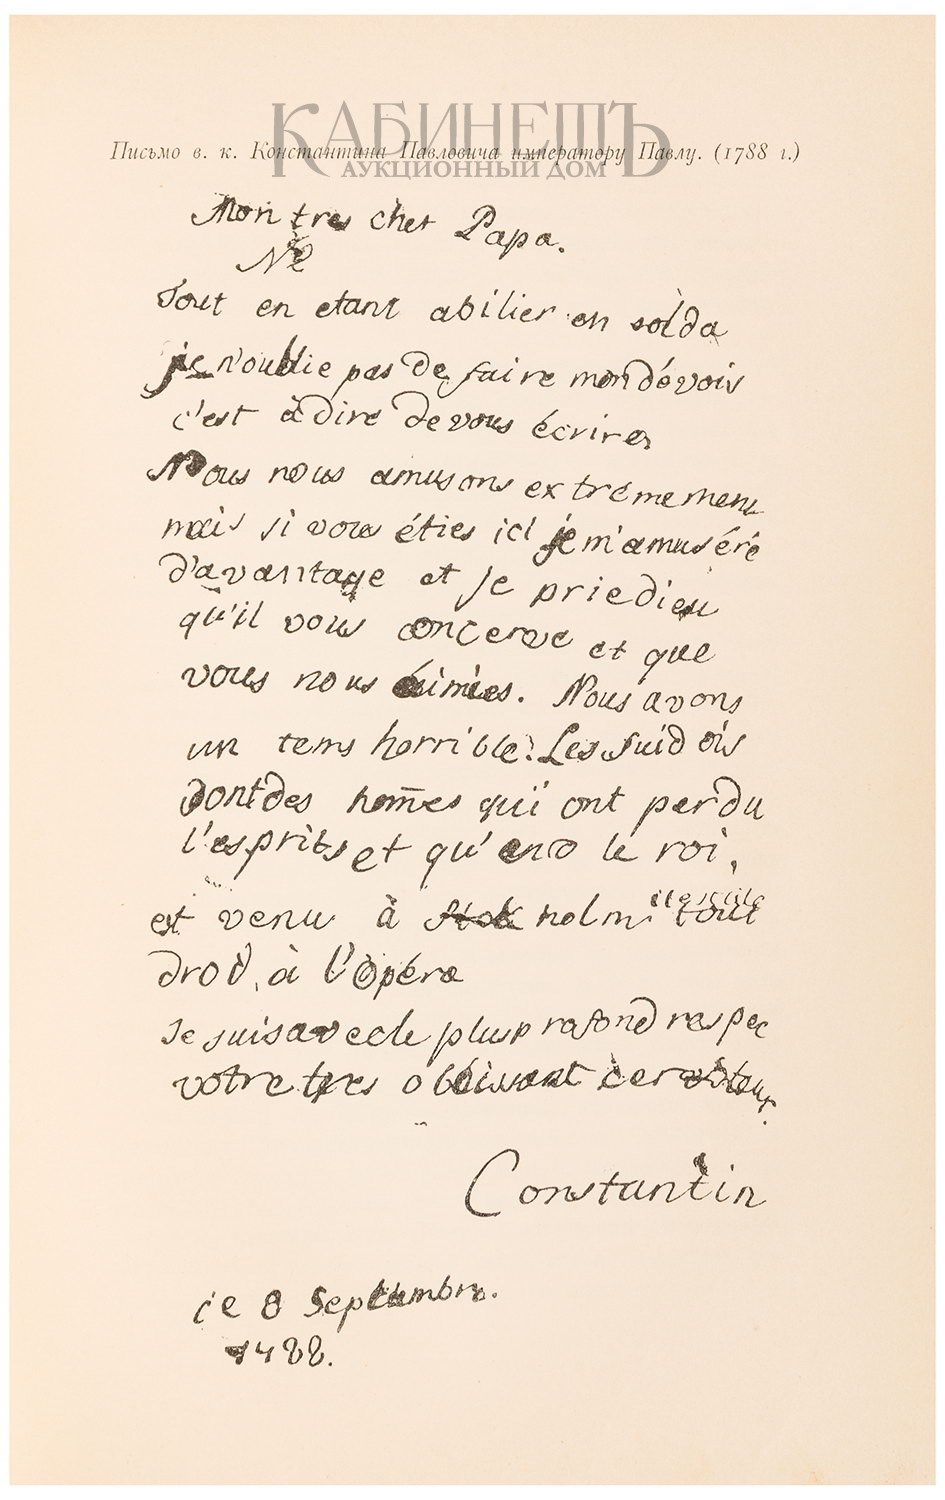 КАБИНЕТЪ
Письмо в. к. Константина Павловича императору Павлу. (1788 г.)
АУКЦИОННЫЙ ДОМ
Mon tres cher Papa.
Ne
Tout en etant abilier en solda
je n'oublie pas de faire mon dévois
c'est à dire de vous écrire
Nous nous amusons extrémement
mais si vous éties ici je m'amuséré
d'avantage et je prie dieu
qu'il vous concerve et que
vous nous aimies. Nous avons
un tems horrible. Les suidois
dont des hom̃es qui ont perdu
l'esprits et qu'and le roi,
est venu à Stokholm tout
droi, à l'Opéra
Je suis avec le plus profond respec
votre tres obéissant cerviteur.
Constantin
ce 8 Septembre.
1788.